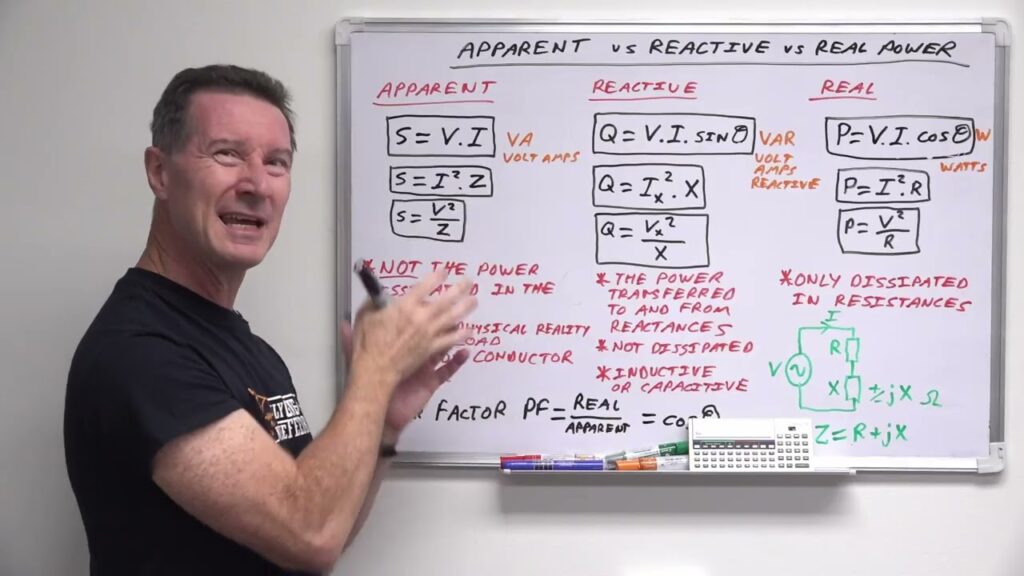 APPARENT vs REACTIVE vs REAL POWER
APPARENT
S = V.I
VA
VOLT AMPS
S = I².Z
S = V²/Z
*NOT THE POWER
DISSIPATED IN THE
PHYSICAL REALITY
LOAD
CONDUCTOR
REACTIVE
Q = V.I.SINθ
VAR
VOLT
AMPS
REACTIVE
Q = Iₓ².X
Q = Vₓ²/X
*THE POWER
TRANSFERRED
TO AND FROM
REACTANCES
*NOT DISSIPATED
*INDUCTIVE
OR CAPACITIVE
REAL
P=V.I.COSθ
W
WATTS
P=I².R
P=V²/R
*ONLY DISSIPATED
IN RESISTANCES
I
R
V
X ±jX Ω
Z=R+jX
FACTOR PF=REAL/APPARENT = COSθ